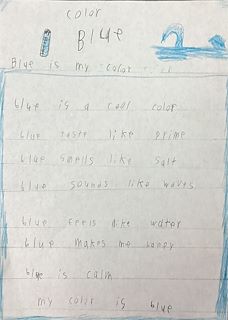 color
Blue
Blue is my color
blue is a cool color
blue taste like prime
blue smells like salt
blue sounds like waves
blue feels like water
blue makes me
blue is calm
my color is blue